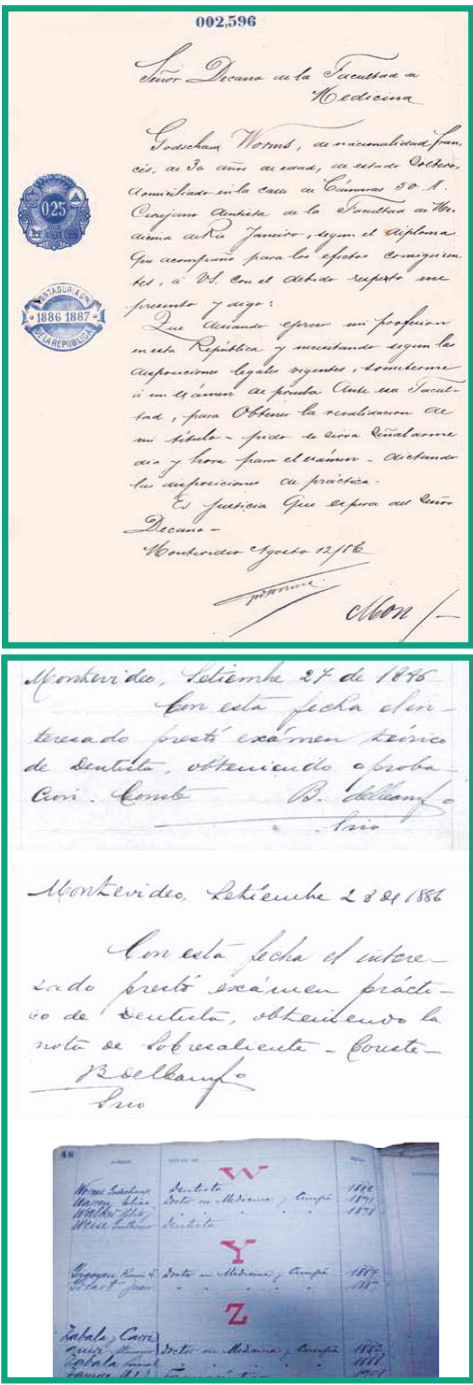 002,596
Señor Decano de la Facultad de
Medicina
025
CONTADURIA GRAL
1886 1887
DE LA REPUBLICA
Godschaux Worms, de nacionalidad fran-
cés, de 30 años de edad, de estado Soltero,
domiciliado en la calle de Cámaras 50 A.
Cirujano dentista de la Facultad de Me-
dicina de Rio Janeiro, segun el diploma
que acompaño para los efectos consiguien-
tes, á VS. con el debido respeto me
presento y digo:
Que deseando ejercer mi profesion
en esta República y necesitando segun las
disposiciones legales vigentes, someterme
á un exámen de prueba Ante esa Facul-
tad, para Obtener la revalidacion de
mi título - pido se sirva Señalarme
dia y hora para el exámen - dictando
las disposiciones de práctica.
Es justicia Que espera del Señor
Decano -
Montevideo Agosto 12/86
Mon /-
Montevideo, Setiembre 27 de 1886
Con esta fecha el in-
teresado prestó exámen teórico
de Dentista, obteniendo aproba-
cion. Conste B. del Campo
Srio
Montevideo, Setiembre 28 de 1886
Con esta fecha el intere-
sado prestó exámen prácti-
co de Dentista, obteniendo la
nota de Sobresaliente - Conste -
B del Campo
Srio
48
W
Worms Godschaux Dentista
Doctor en Medicina y Cirugía 1891
Walker 1878
Dentista
Y
Yrigoyen Doctor en Medicina y Cirugía
Juan
Z
Zabala y Carri
Doctor en Medicina y Cirugía
Zabala